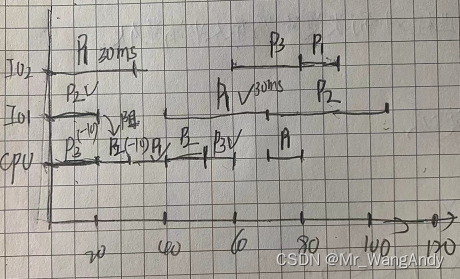 P1 30ms P3 P1
IO2
P2 V P1 V 30ms P2
IO1
P3 (-10) P2 (-10) P1 P2 P3 V P1
CPU
20 40 60 80 100 120
CSDN @Mr_WangAndy